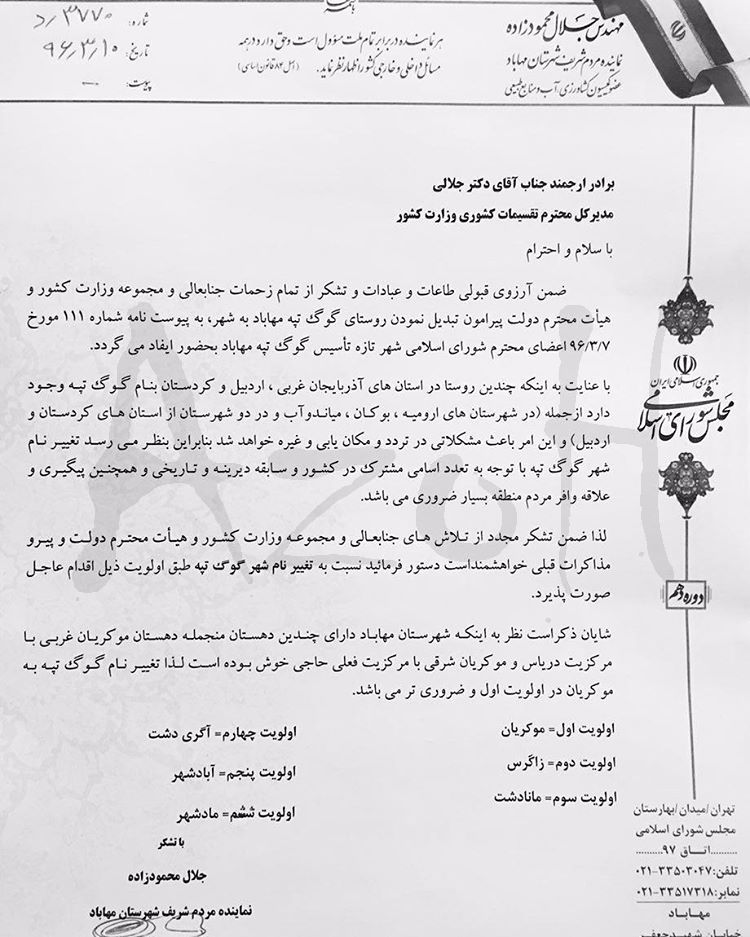 مهندس جلال محمودزاده
نماینده مردم شریف شهرستان مهاباد
عضو کمیسیون کشاورزی، آب و منابع طبیعی
هر نماینده در برابر تمام ملت مسؤول است و حق دارد در همه
مسائل داخلی و خارجی کشور اظهار نظر نماید. (اصل ۸۴ قانون اساسی)
شماره: ۳۷۷۰/د
تاریخ: ۹۶/۳/۱۰
پیوست: —
برادر ارجمند جناب آقای دکتر جلالی
مدیرکل محترم تقسیمات کشوری وزارت کشور
با سلام و احترام
ضمن آرزوی قبولی طاعات و عبادات و تشکر از تمام زحمات جنابعالی و مجموعه وزارت کشور و
هیأت محترم دولت پیرامون تبدیل نمودن روستای گوگ تپه مهاباد به شهر، به پیوست نامه شماره ۱۱۱ مورخ
۹۶/۳/۷ اعضای محترم شورای اسلامی شهر تازه تأسیس گوگ تپه مهاباد بحضور ایفاد می گردد.
با عنایت به اینکه چندین روستا در استان های آذربایجان غربی ، اردبیل و کردستان بنام گوگ تپه وجود
دارد ازجمله (در شهرستان های ارومیه ، بوکان ، میاندوآب و در دو شهرستان از استان های کردستان و
اردبیل) و این امر باعث مشکلاتی در تردد و مکان یابی و غیره خواهد شد بنابراین بنظر می رسد تغییر نام
شهر گوگ تپه با توجه به تعدد اسامی مشترک در کشور و سابقه دیرینه و تاریخی و همچنین پیگیری و
علاقه وافر مردم منطقه بسیار ضروری می باشد.
لذا ضمن تشکر مجدد از تلاش های جنابعالی و مجموعه وزارت کشور و هیأت محترم دولت و پیرو
مذاکرات قبلی خواهشمنداست دستور فرمائید نسبت به تغییر نام شهر گوگ تپه طبق اولویت ذیل اقدام عاجل
صورت پذیرد.
شایان ذکراست نظر به اینکه شهرستان مهاباد دارای چندین دهستان منجمله دهستان موکریان غربی با
مرکزیت دریاس و موکریان شرقی با مرکزیت فعلی حاجی خوش بوده است لذا تغییر نام گوگ تپه به
موکریان در اولویت اول و ضروری تر می باشد.
اولویت اول= موکریان
اولویت دوم= زاگرس
اولویت سوم= مانادشت
اولویت چهارم= آگری دشت
اولویت پنجم= آبادشهر
اولویت ششم= مادشهر
با تشکر
جلال محمودزاده
نماینده مردم شریف شهرستان مهاباد
جمهوری اسلامی ایران
مجلس شورای اسلامی
دوره دهم
تهران/میدان/بهارستان
مجلس شورای اسلامی
..........اتاق ۹۷..........
تلفن: ۳۳۵۰۳۰۴۷-۰۲۱
نمابر: ۳۳۵۱۷۳۱۸-۰۲۱
مهاباد
خیابان شهیدجعفر
AzoH